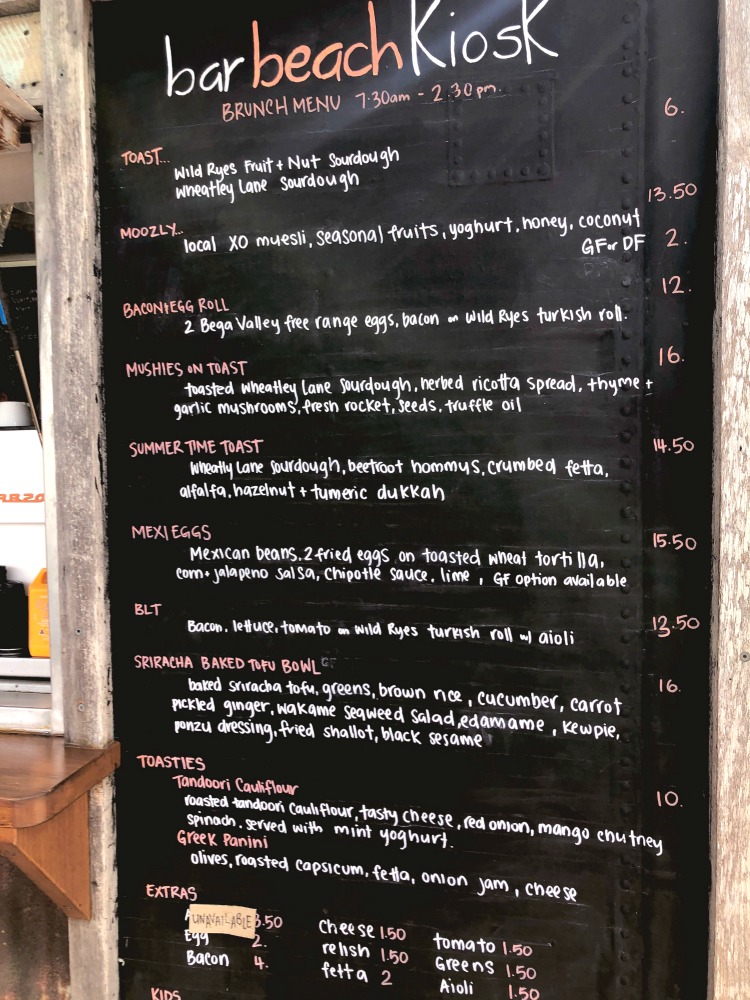 bar beach Kiosk
BRUNCH MENU 7.30am - 2.30pm.
TOAST... 6.
Wild Ryes Fruit + Nut Sourdough
Wheatley Lane Sourdough
MOOZLY... 13.50
local XO muesli, seasonal fruits, yoghurt, honey, coconut
GF or DF 2.
BACON+EGG ROLL 12.
2 Bega Valley free range eggs, bacon on Wild Ryes turkish roll.
MUSHIES ON TOAST 16.
toasted Wheatley Lane Sourdough, herbed ricotta spread, thyme +
garlic mushrooms, fresh rocket, seeds, truffle oil
SUMMER TIME TOAST 14.50
Wheatly Lane Sourdough, beetroot hommus, crumbed fetta,
alfalfa, hazelnut + tumeric dukkah
MEXI EGGS 15.50
Mexican beans, 2 fried eggs on toasted wheat tortilla,
corn + jalapeno salsa, Chipotle sauce, lime, GF option available
BLT 13.50
Bacon, lettuce, tomato on Wild Ryes turkish roll w/ aioli
SRIRACHA BAKED TOFU BOWL GF 16.
baked sriracha tofu, greens, brown rice, cucumber, carrot
pickled ginger, wakame seaweed salad, edamame, kewpie,
ponzu dressing, fried shallot, black sesame
TOASTIES
Tandoori Cauliflour 10.
roasted tandoori cauliflour, tasty cheese, red onion, mango chutney
spinach. served with mint yoghurt.
Greek Panini
olives, roasted capsicum, fetta, onion jam, cheese
EXTRAS
UNAVAILABLE 3.50 Cheese 1.50 tomato 1.50
Egg 2. relish 1.50 Greens 1.50
Bacon 4. fetta 2 Aioli 1.50
KIDS